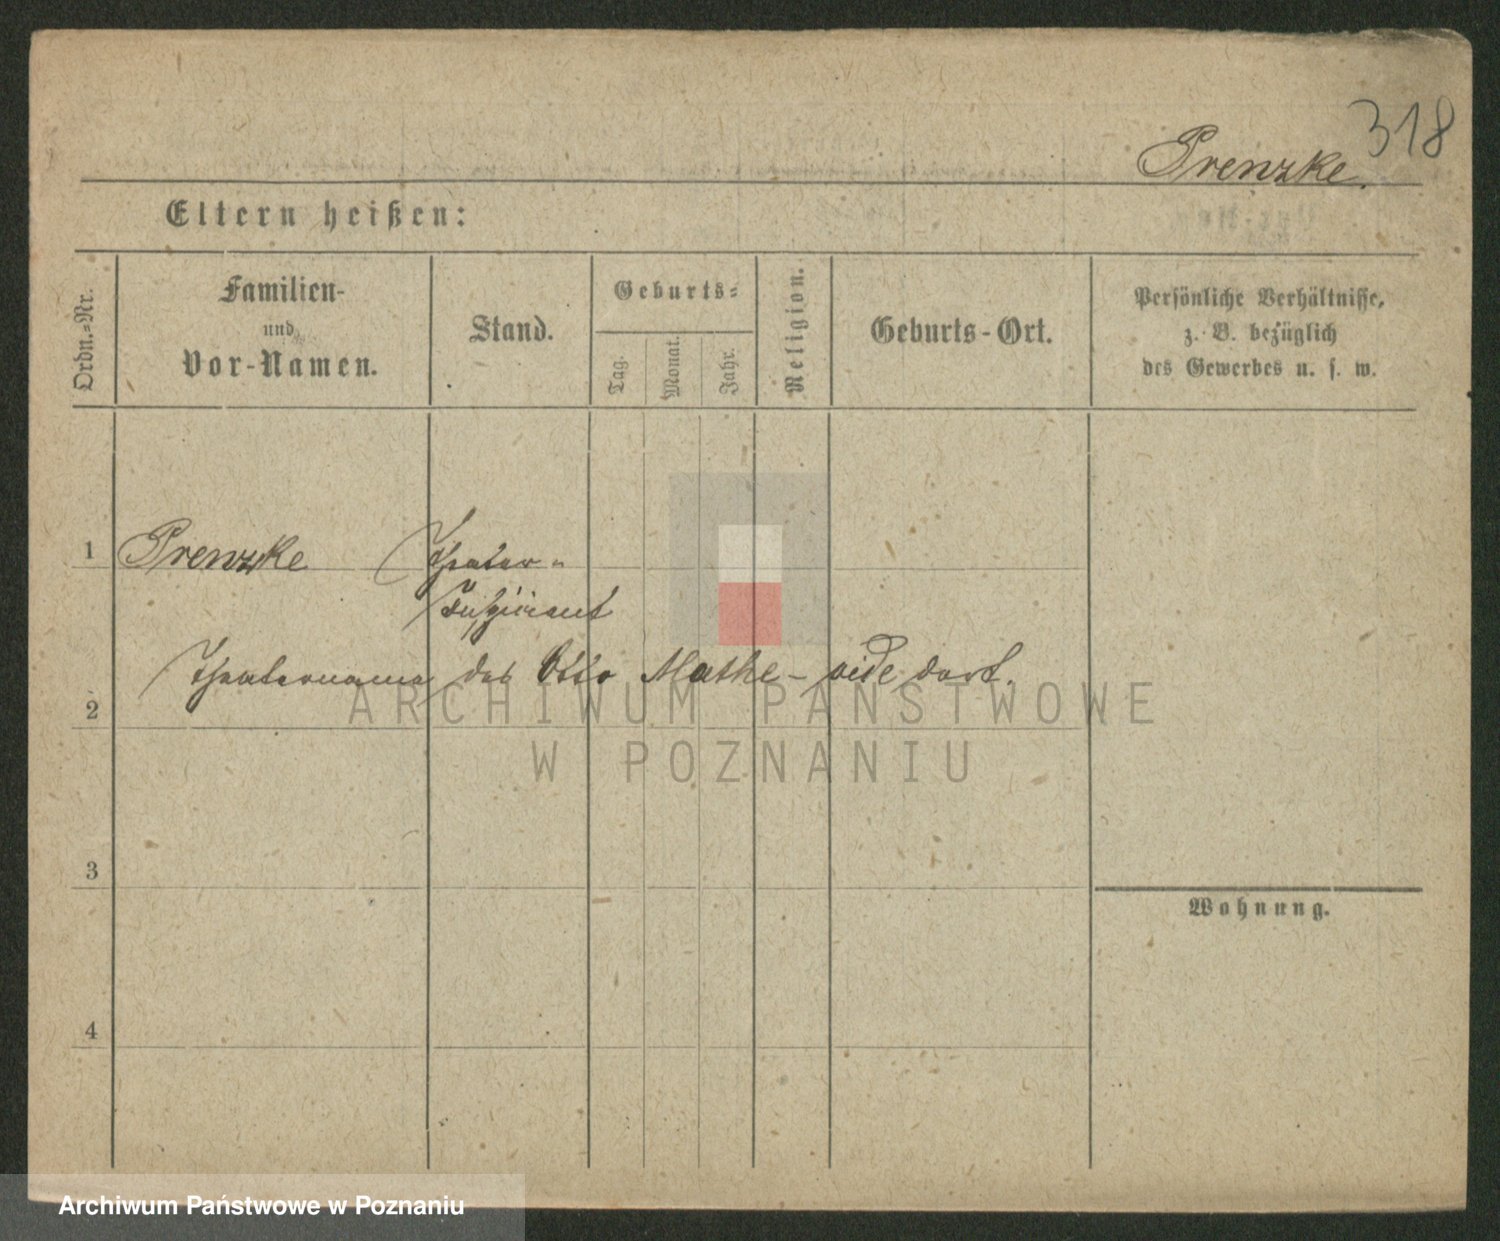 318
Prenzke.
Eltern heißen:
Ordn.-Nr.
Familien-
und
Vor-Namen.
Stand.
Geburts-
Tag.
Monat.
Jahr.
Religion.
Geburts-Ort.
Persönliche Verhältnisse,
z. B. bezüglich
des Gewerbes u. s. w.
1 Prenzke Theater-
2 Theatername des Otto Mathe - vide dort.
3
Wohnung.
4
ARCHIWUM PAŃSTWOWE
W POZNANIU
Archiwum Państwowe w Poznaniu